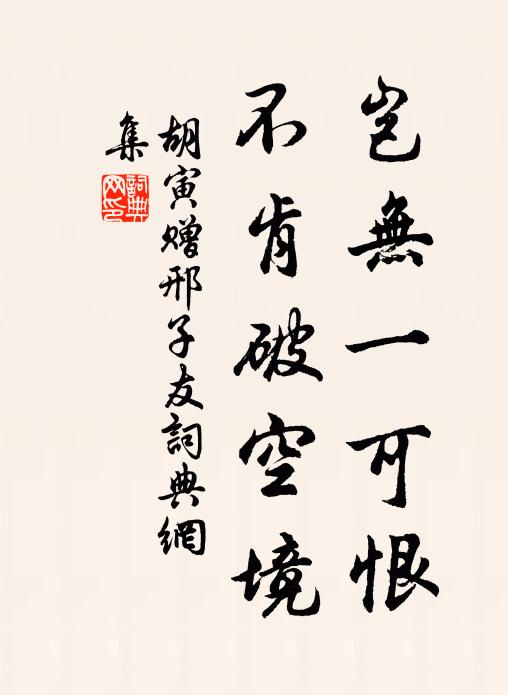 豈無一可恨
不肯破空境
胡寅贈邢子友詞典網
集
詞典
网印